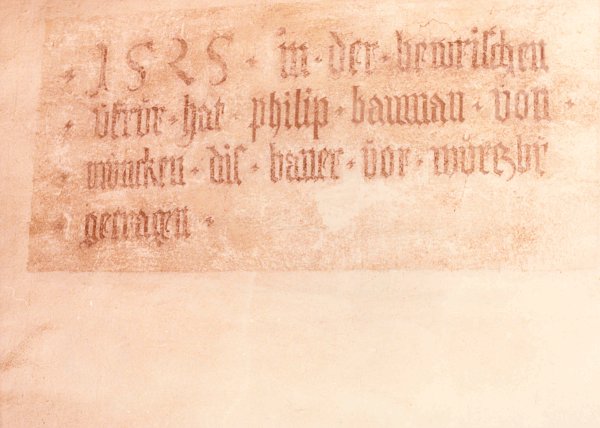 · 1525 · in · der · bewrischen
· vfrůr · hat · philip · bauman · von ·
· mŭcken · dis · baner · vor · wŭrtzbŭrg
· getragen ·